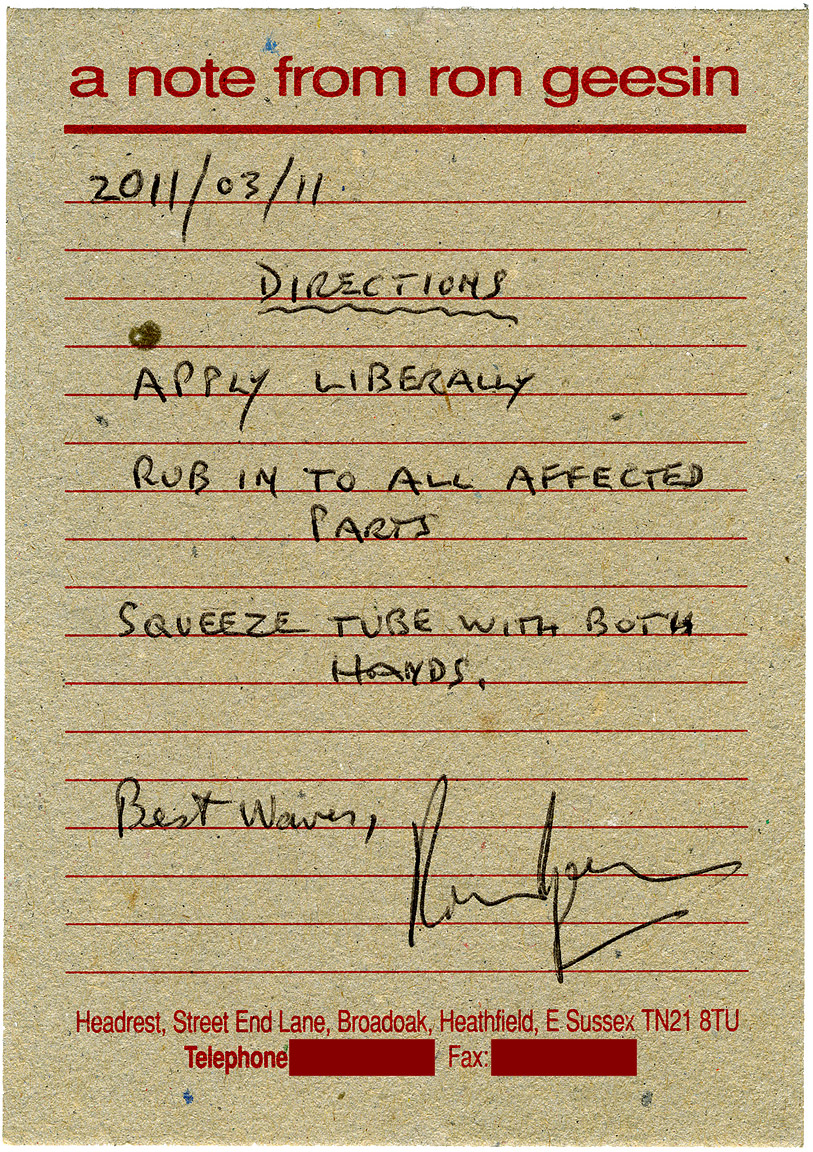 a note from ron geesin
2011/03/11
DIRECTIONS
APPLY LIBERALLY
RUB IN TO ALL AFFECTED
PARTS
SQUEEZE TUBE WITH BOTH
HANDS.
Best Waves,
Ron Geesin
Headrest, Street End Lane, Broadoak, Heathfield, E Sussex TN21 8TU
Telephone Fax: